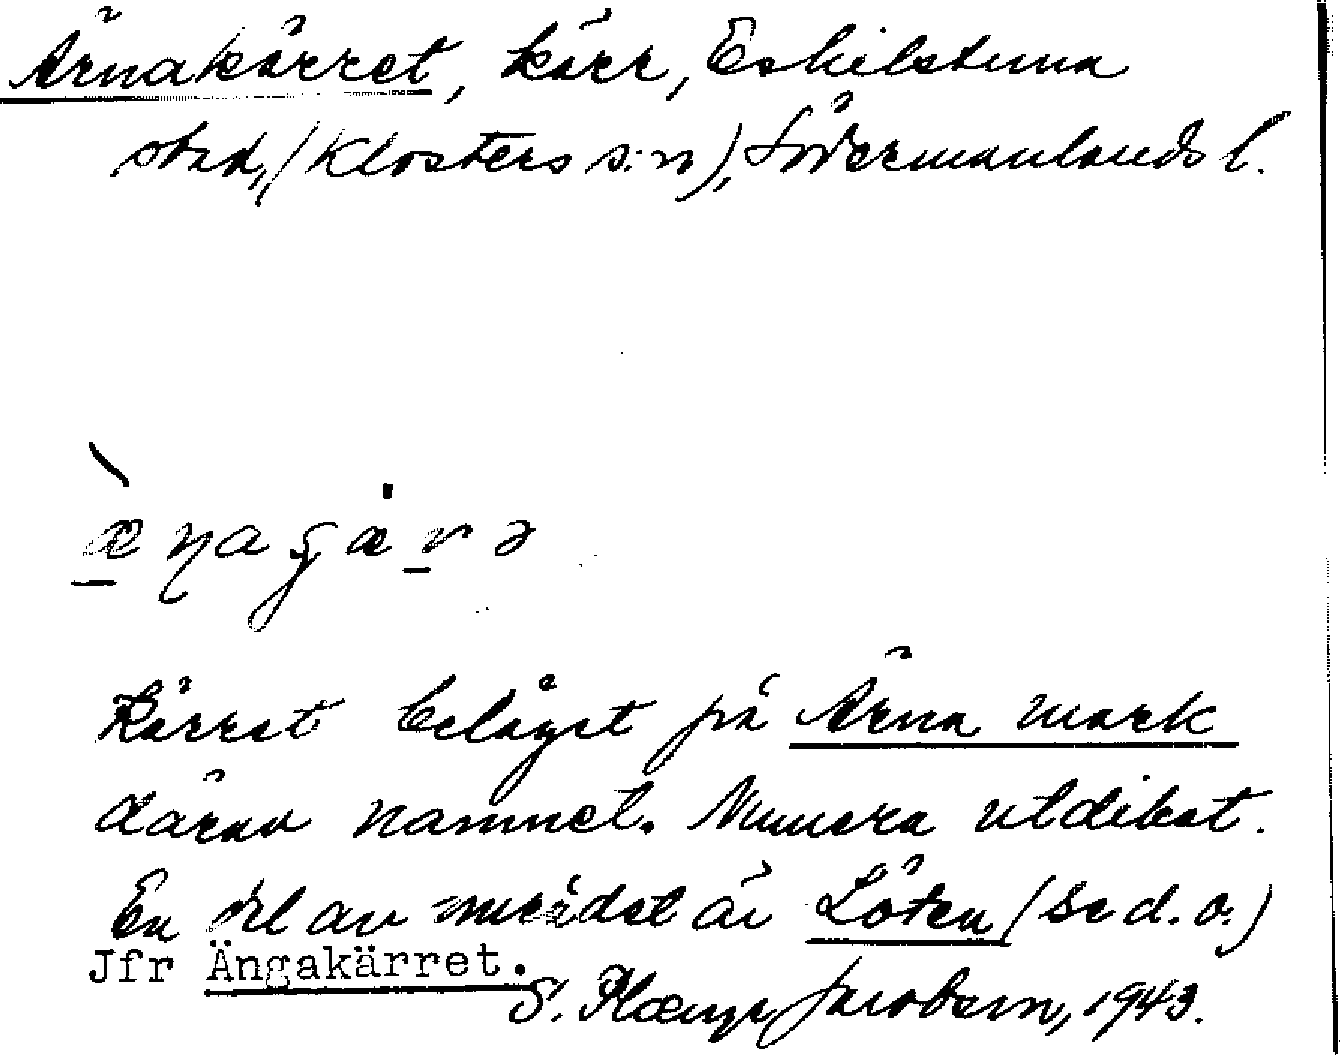 Ärnakärret, kärr, Eskilstuna
stad, (Klosters s:n), Södermanlands l.
Kärret beläget på Ärna mark
därav namnet. Numera utdikat.
En del av området är Löten (se d. o.)
Jfr Ängakärret.
S. Jacobson, 1943.